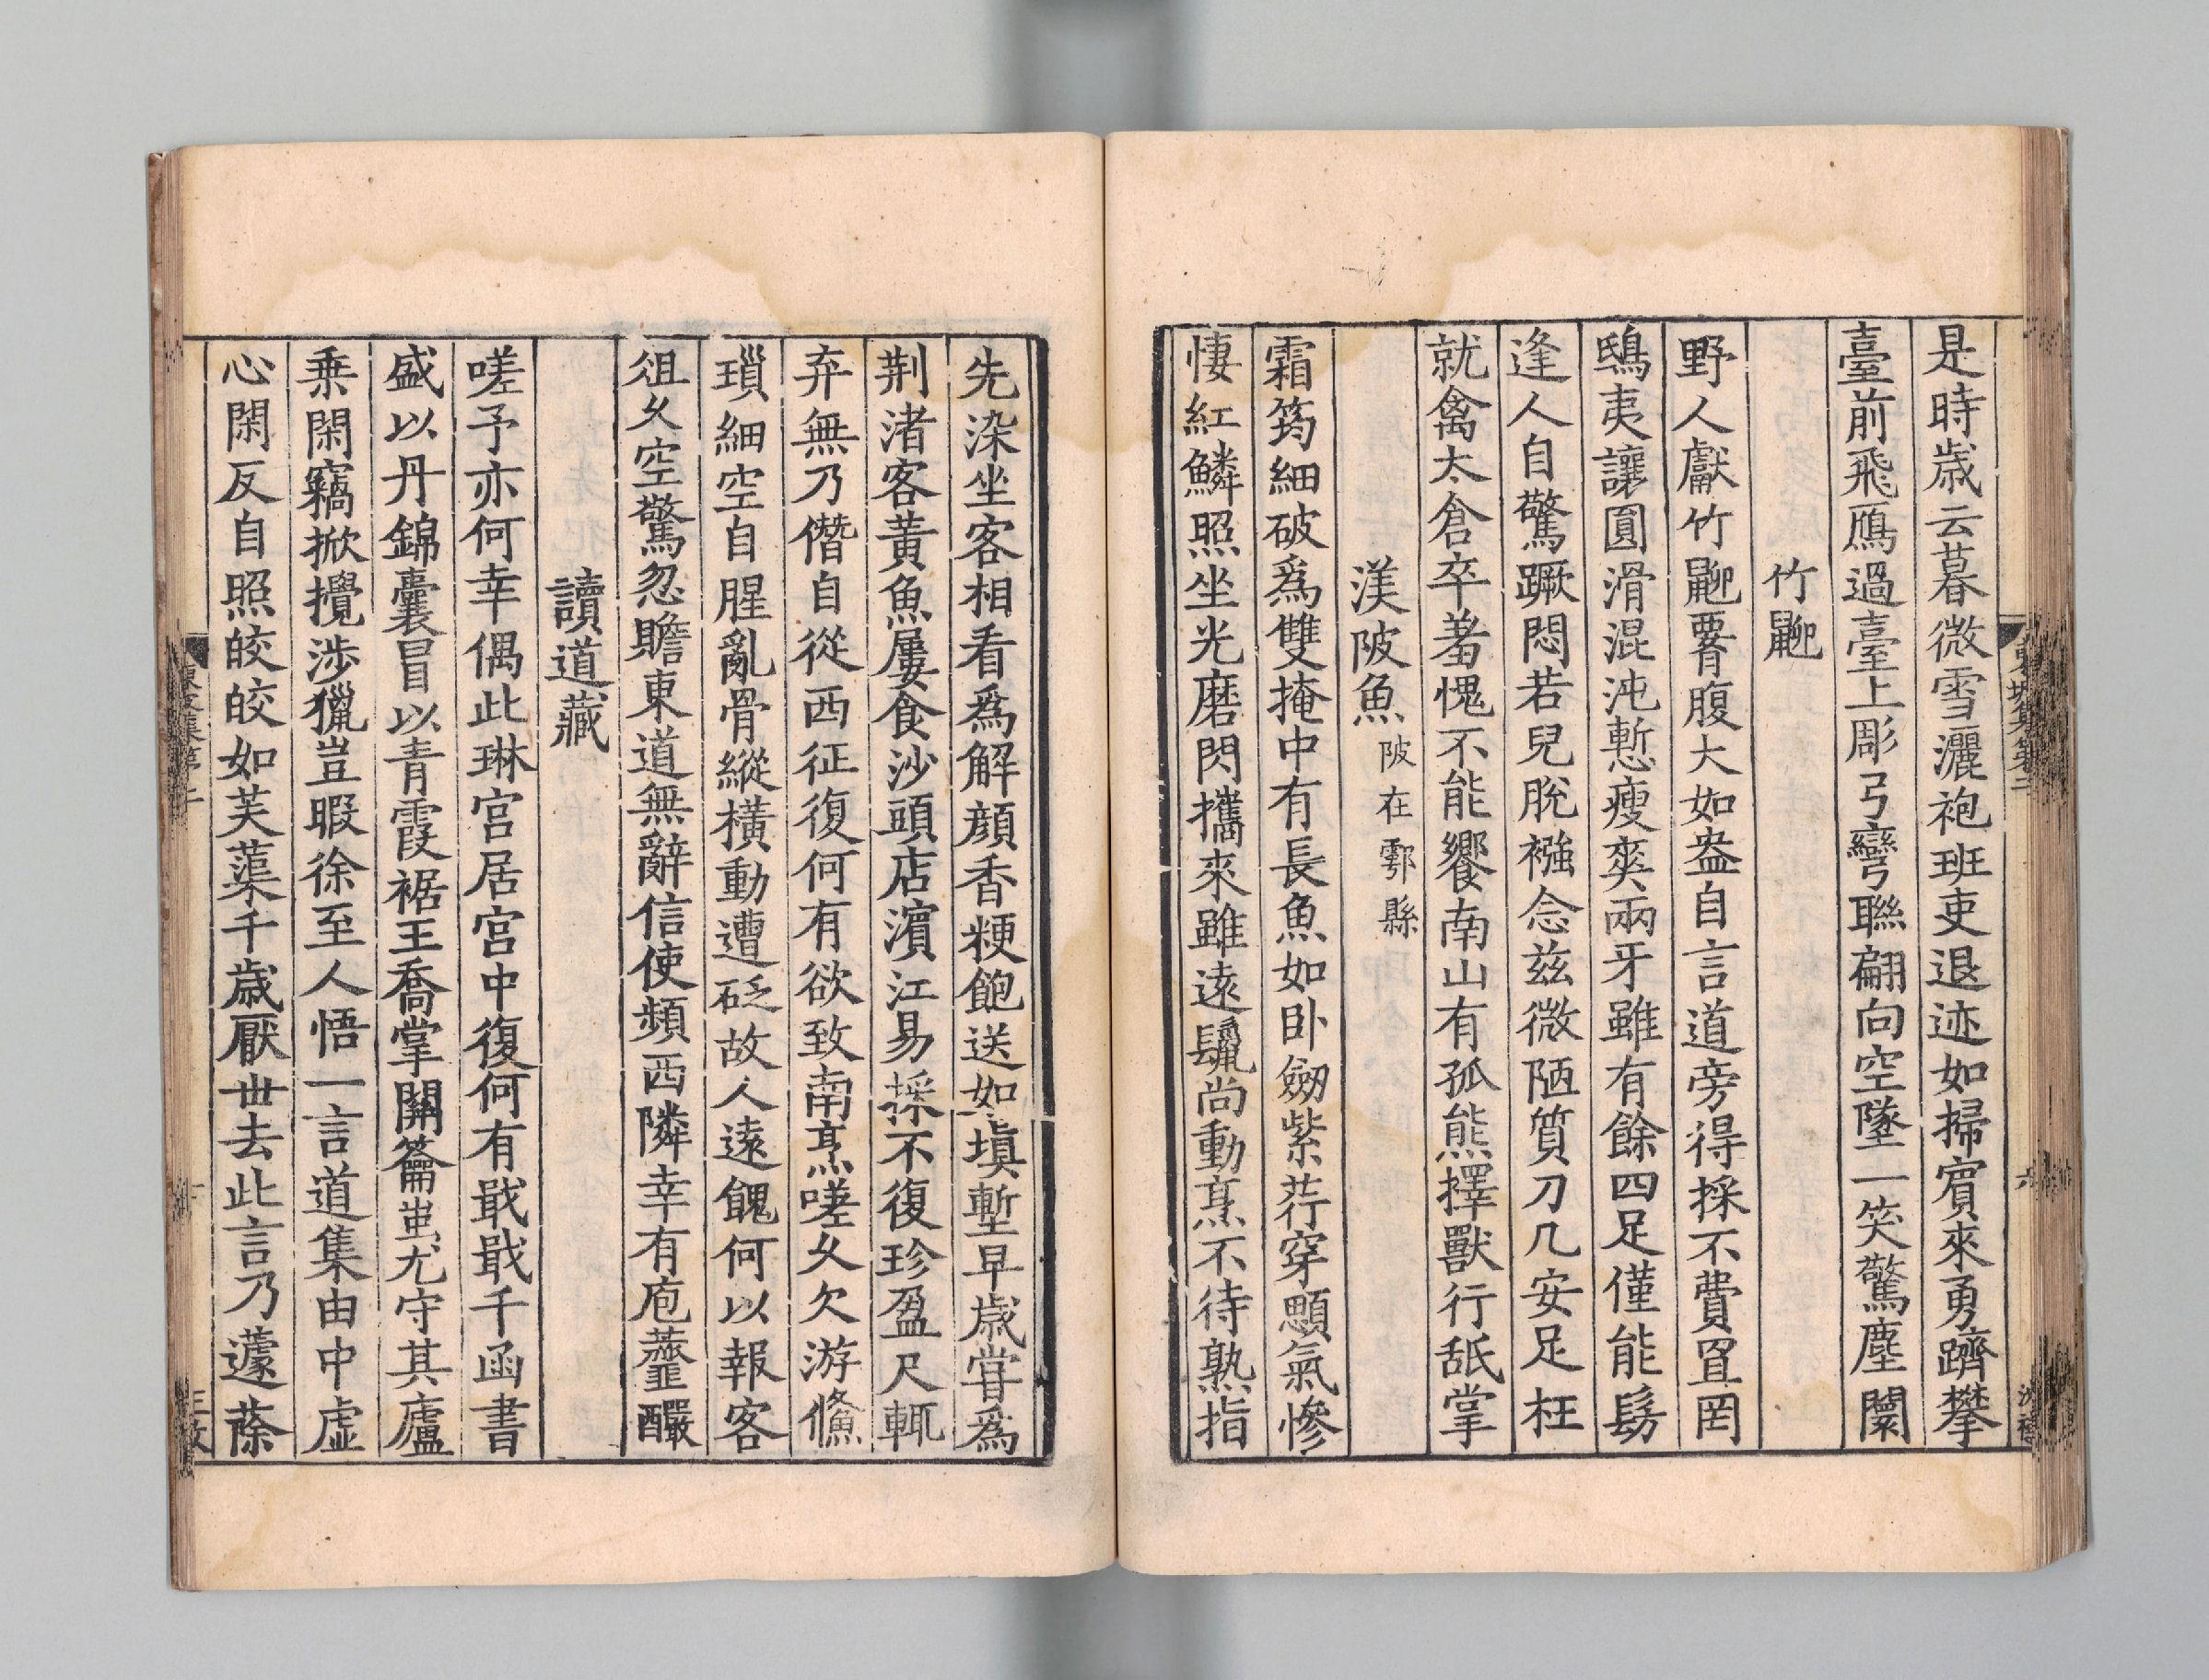 是時歲云暮微雪灑袍班吏退迹如掃賔來勇躋攀
臺前飛鴈過臺上彫弓彎聯翩向空墜一笑驚塵闤
竹䶉
野人獻竹䶉腰腹大如盎自言道旁得採不費罝罔
鴟夷讓圓滑混沌慙瘦爽兩牙雖有餘四足僅能髣
逢人自驚蹶悶若兒脫襁念兹微陋質刀几安足枉
就禽太倉卒羞愧不能饗南山有孤熊擇獸行舐掌
渼陂魚 陂在鄠縣
霜筠細破爲雙掩中有長魚如卧劒紫荇穿顋氣慘
悽紅鱗照坐光磨閃攜來雖遠鬛尚動烹不待熟指
先染坐客相看爲解顔香粳飽送如塡塹早歲甞爲
荆渚客黄魚屢食沙頭店濱江易採不復珍盈尺輒
弃無乃僭自從西征復何有欲致南烹嗟久欠游鯈
瑣細空自腥亂骨縱橫動遭砭故人遠餽何以報客
俎久空驚忽贍東道無辭信使頻西隣幸有庖虀釅
讀道藏
嗟予亦何幸偶此琳宫居宫中復何有戢戢千函書
盛以丹錦囊冒以青霞裾王喬掌關籥蚩尤守其廬
乗閑竊掀攪涉獵豈暇徐至人悟一言道集由中虚
心閑反自照皎皎如芙蕖千歲厭世去此言乃籧蒢
東坡集第二